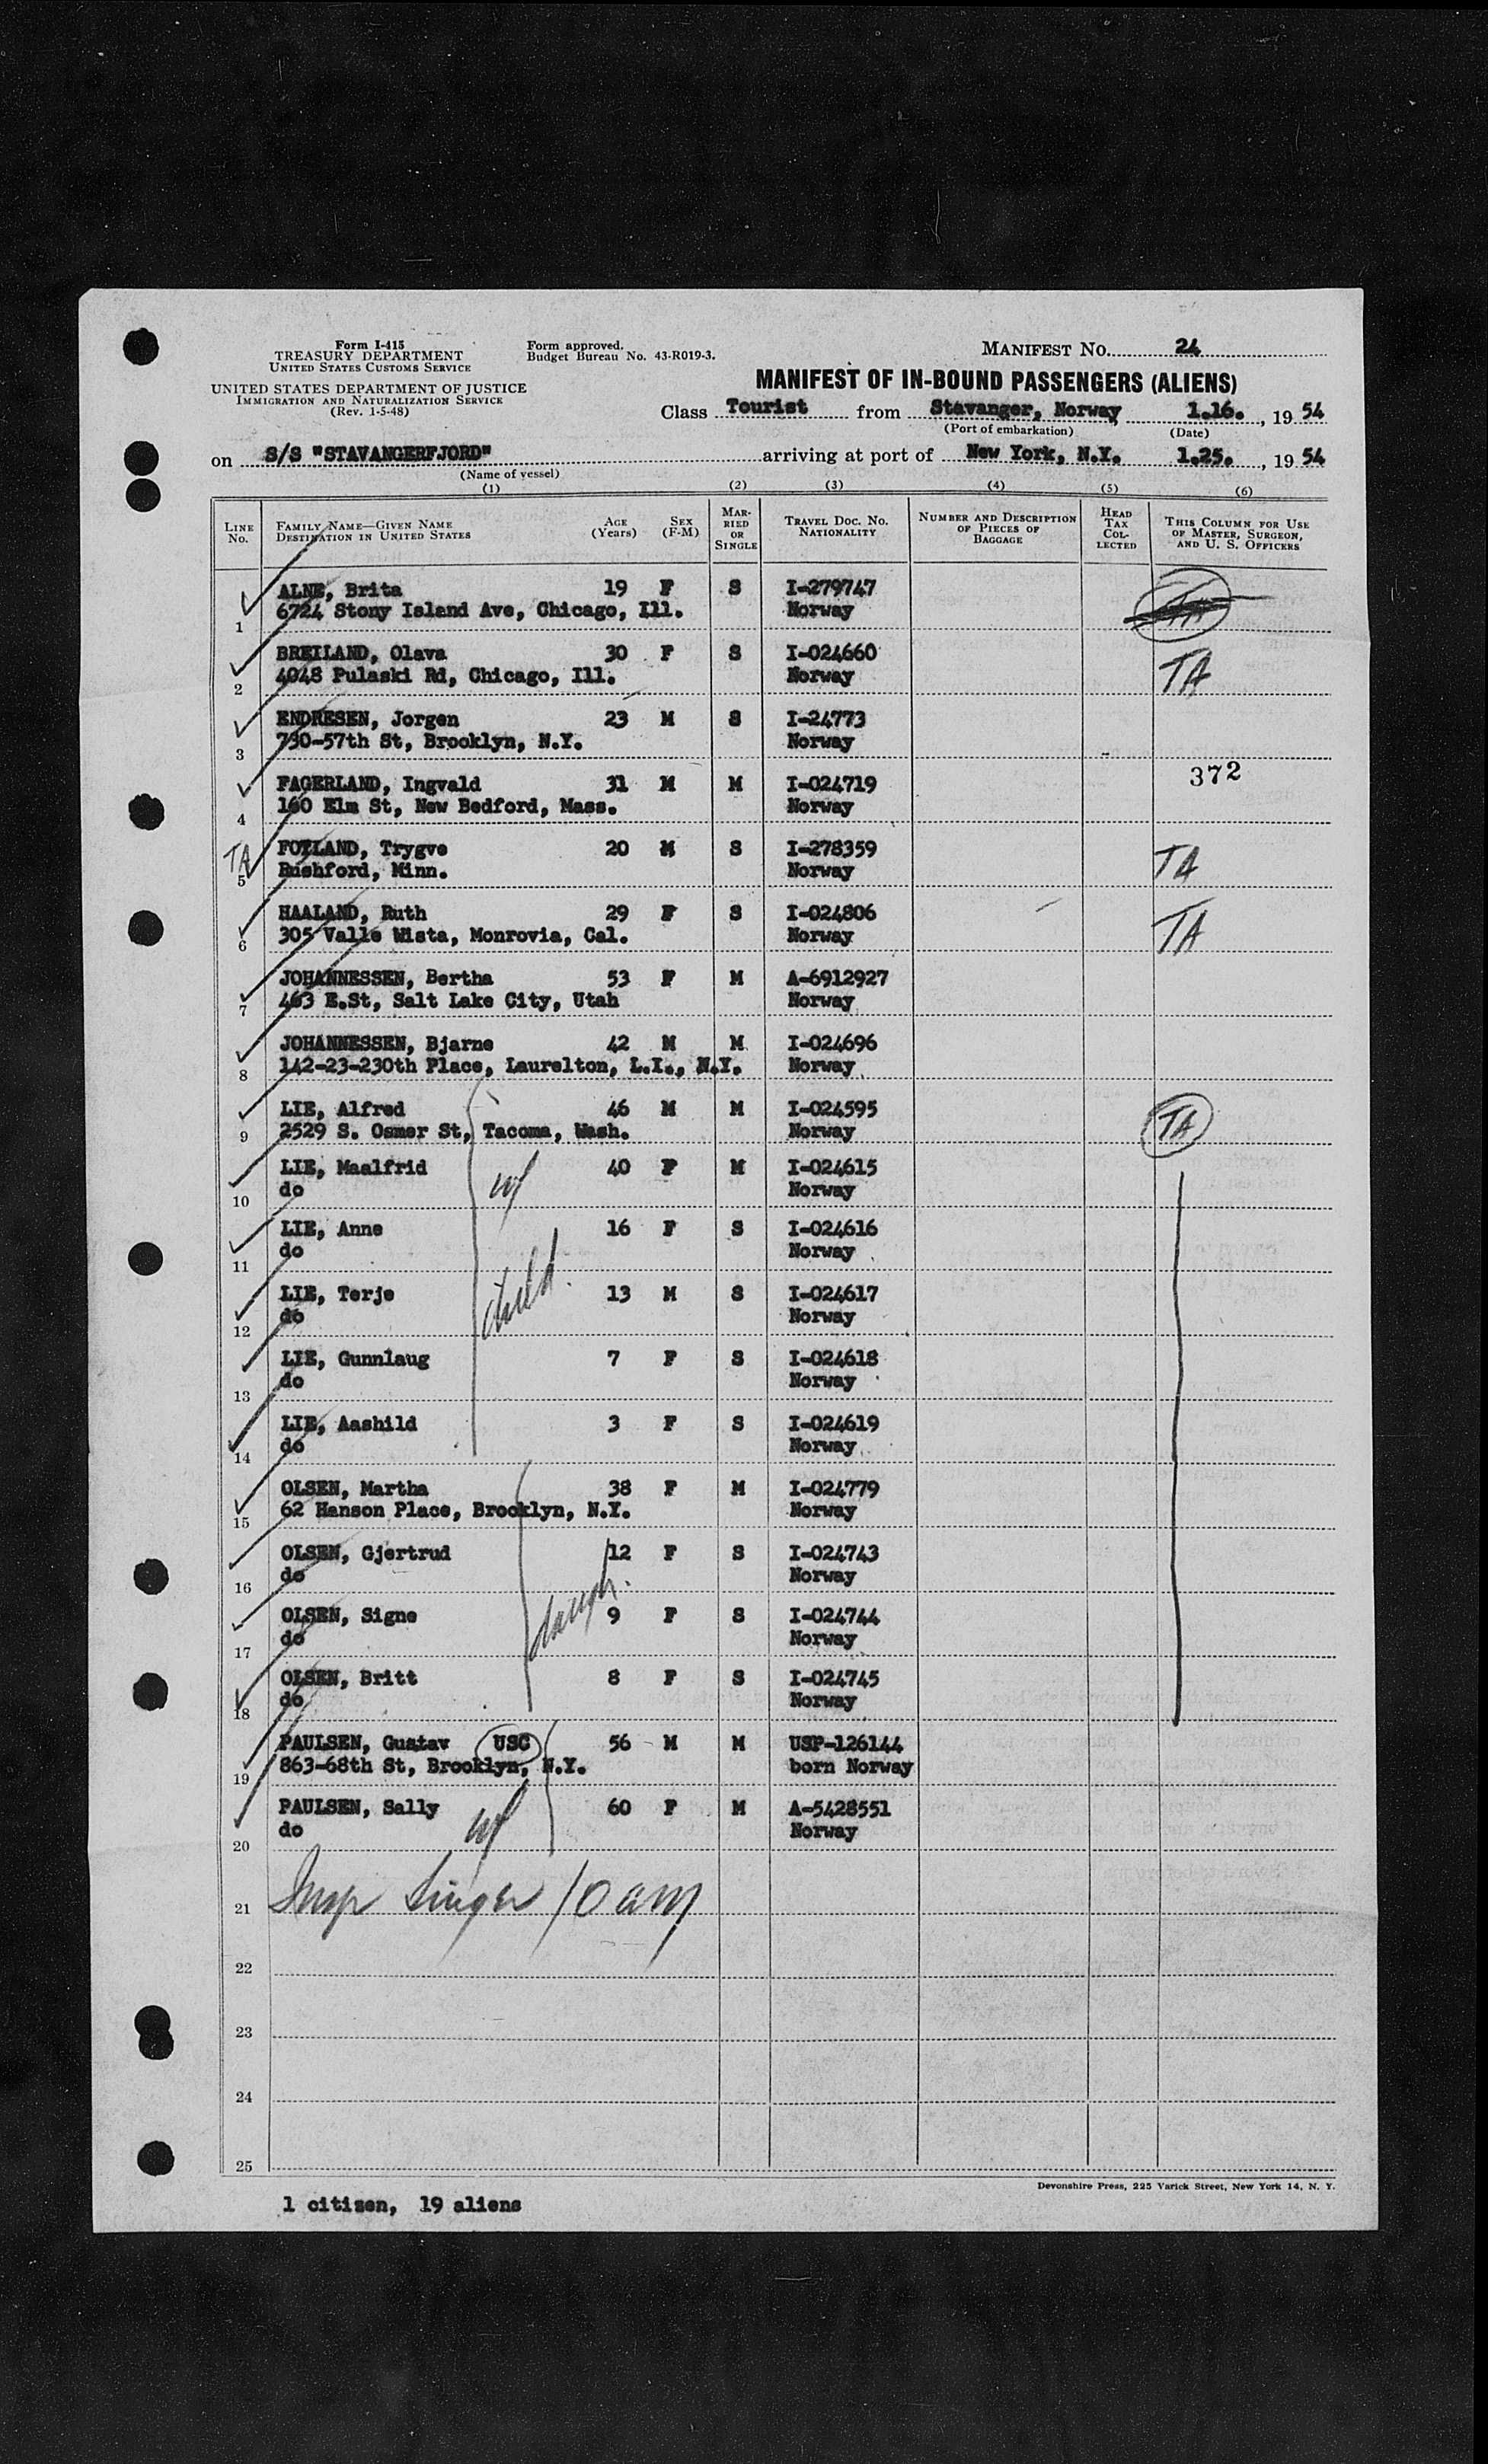 Form I-415
TREASURY DEPARTMENT
UNITED STATES CUSTOMS SERVICE
UNITED STATES DEPARTMENT OF JUSTICE
IMMIGRATION AND NATURALIZATION SERVICE
(Rev. 1-5-48)
Form approved.
Budget Bureau No. 43-R019-3.
MANIFEST No. 24
MANIFEST OF IN-BOUND PASSENGERS (ALIENS)
Class Tourist from Stavanger, Norway 1.16., 19 54
(Port of embarkation) (Date)
on S/S "STAVANGERFJORD" arriving at port of New York, N.Y. 1.25., 19 54
(Name of vessel)
(1) (2) (3) (4) (5) (6)
LINE No. FAMILY NAME—GIVEN NAME DESTINATION IN UNITED STATES AGE (Years) SEX (F-M) MARRIED OR SINGLE TRAVEL DOC. NO. NATIONALITY NUMBER AND DESCRIPTION OF PIECES OF BAGGAGE HEAD TAX COLLECTED THIS COLUMN FOR USE OF MASTER, SURGEON, AND U. S. OFFICERS
ALNE, Brita 19 F S I-279747
1 6724 Stony Island Ave, Chicago, Ill. Norway TA
BREILAND, Olava 30 F S I-024660
2 4048 Pulaski Rd, Chicago, Ill. Norway TA
ENDRESEN, Jorgen 23 M S I-24773
3 730-57th St, Brooklyn, N.Y. Norway
372
FAGERLAND, Ingvald 31 M M I-024719
4 160 Elm St, New Bedford, Mass. Norway
TA FOTLAND, Trygve 20 M S I-278359
5 Rushford, Minn. Norway TA
HAALAND, Ruth 29 F S I-024806
6 305 Valle Wista, Monrovia, Cal. Norway TA
JOHANNESSEN, Bertha 53 F M A-6912927
7 463 E.St, Salt Lake City, Utah Norway
JOHANNESSEN, Bjarne 42 M M I-024696
8 142-23-230th Place, Laurelton, L.I., N.Y. Norway
LIE, Alfred 46 M M I-024595
9 2529 S. Osmer St, Tacoma, Wash. Norway TA
LIE, Maalfrid 40 F M I-024615
10 do wf Norway
LIE, Anne 16 F S I-024616
11 do Norway
LIE, Terje child. 13 M S I-024617
12 do Norway
LIE, Gunnlaug 7 F S I-024618
13 do Norway
LIE, Aashild 3 F S I-024619
14 do Norway
OLSEN, Martha 38 F M I-024779
15 62 Hanson Place, Brooklyn, N.Y. Norway
OLSEN, Gjertrud 12 F S I-024743
16 do Norway
OLSEN, Signe daugh. 9 F S I-024744
17 do Norway
OLSEN, Britt 8 F S I-024745
18 do Norway
PAULSEN, Gustav USC 56 M M USP-126144
19 863-68th St, Brooklyn, N.Y. born Norway
PAULSEN, Sally wf 60 F M A-5428551
20 do Norway
21 Insp Singer 10 am
22
23
24
25
Devonshire Press, 225 Varick Street, New York 14, N. Y.
1 citizen, 19 aliens